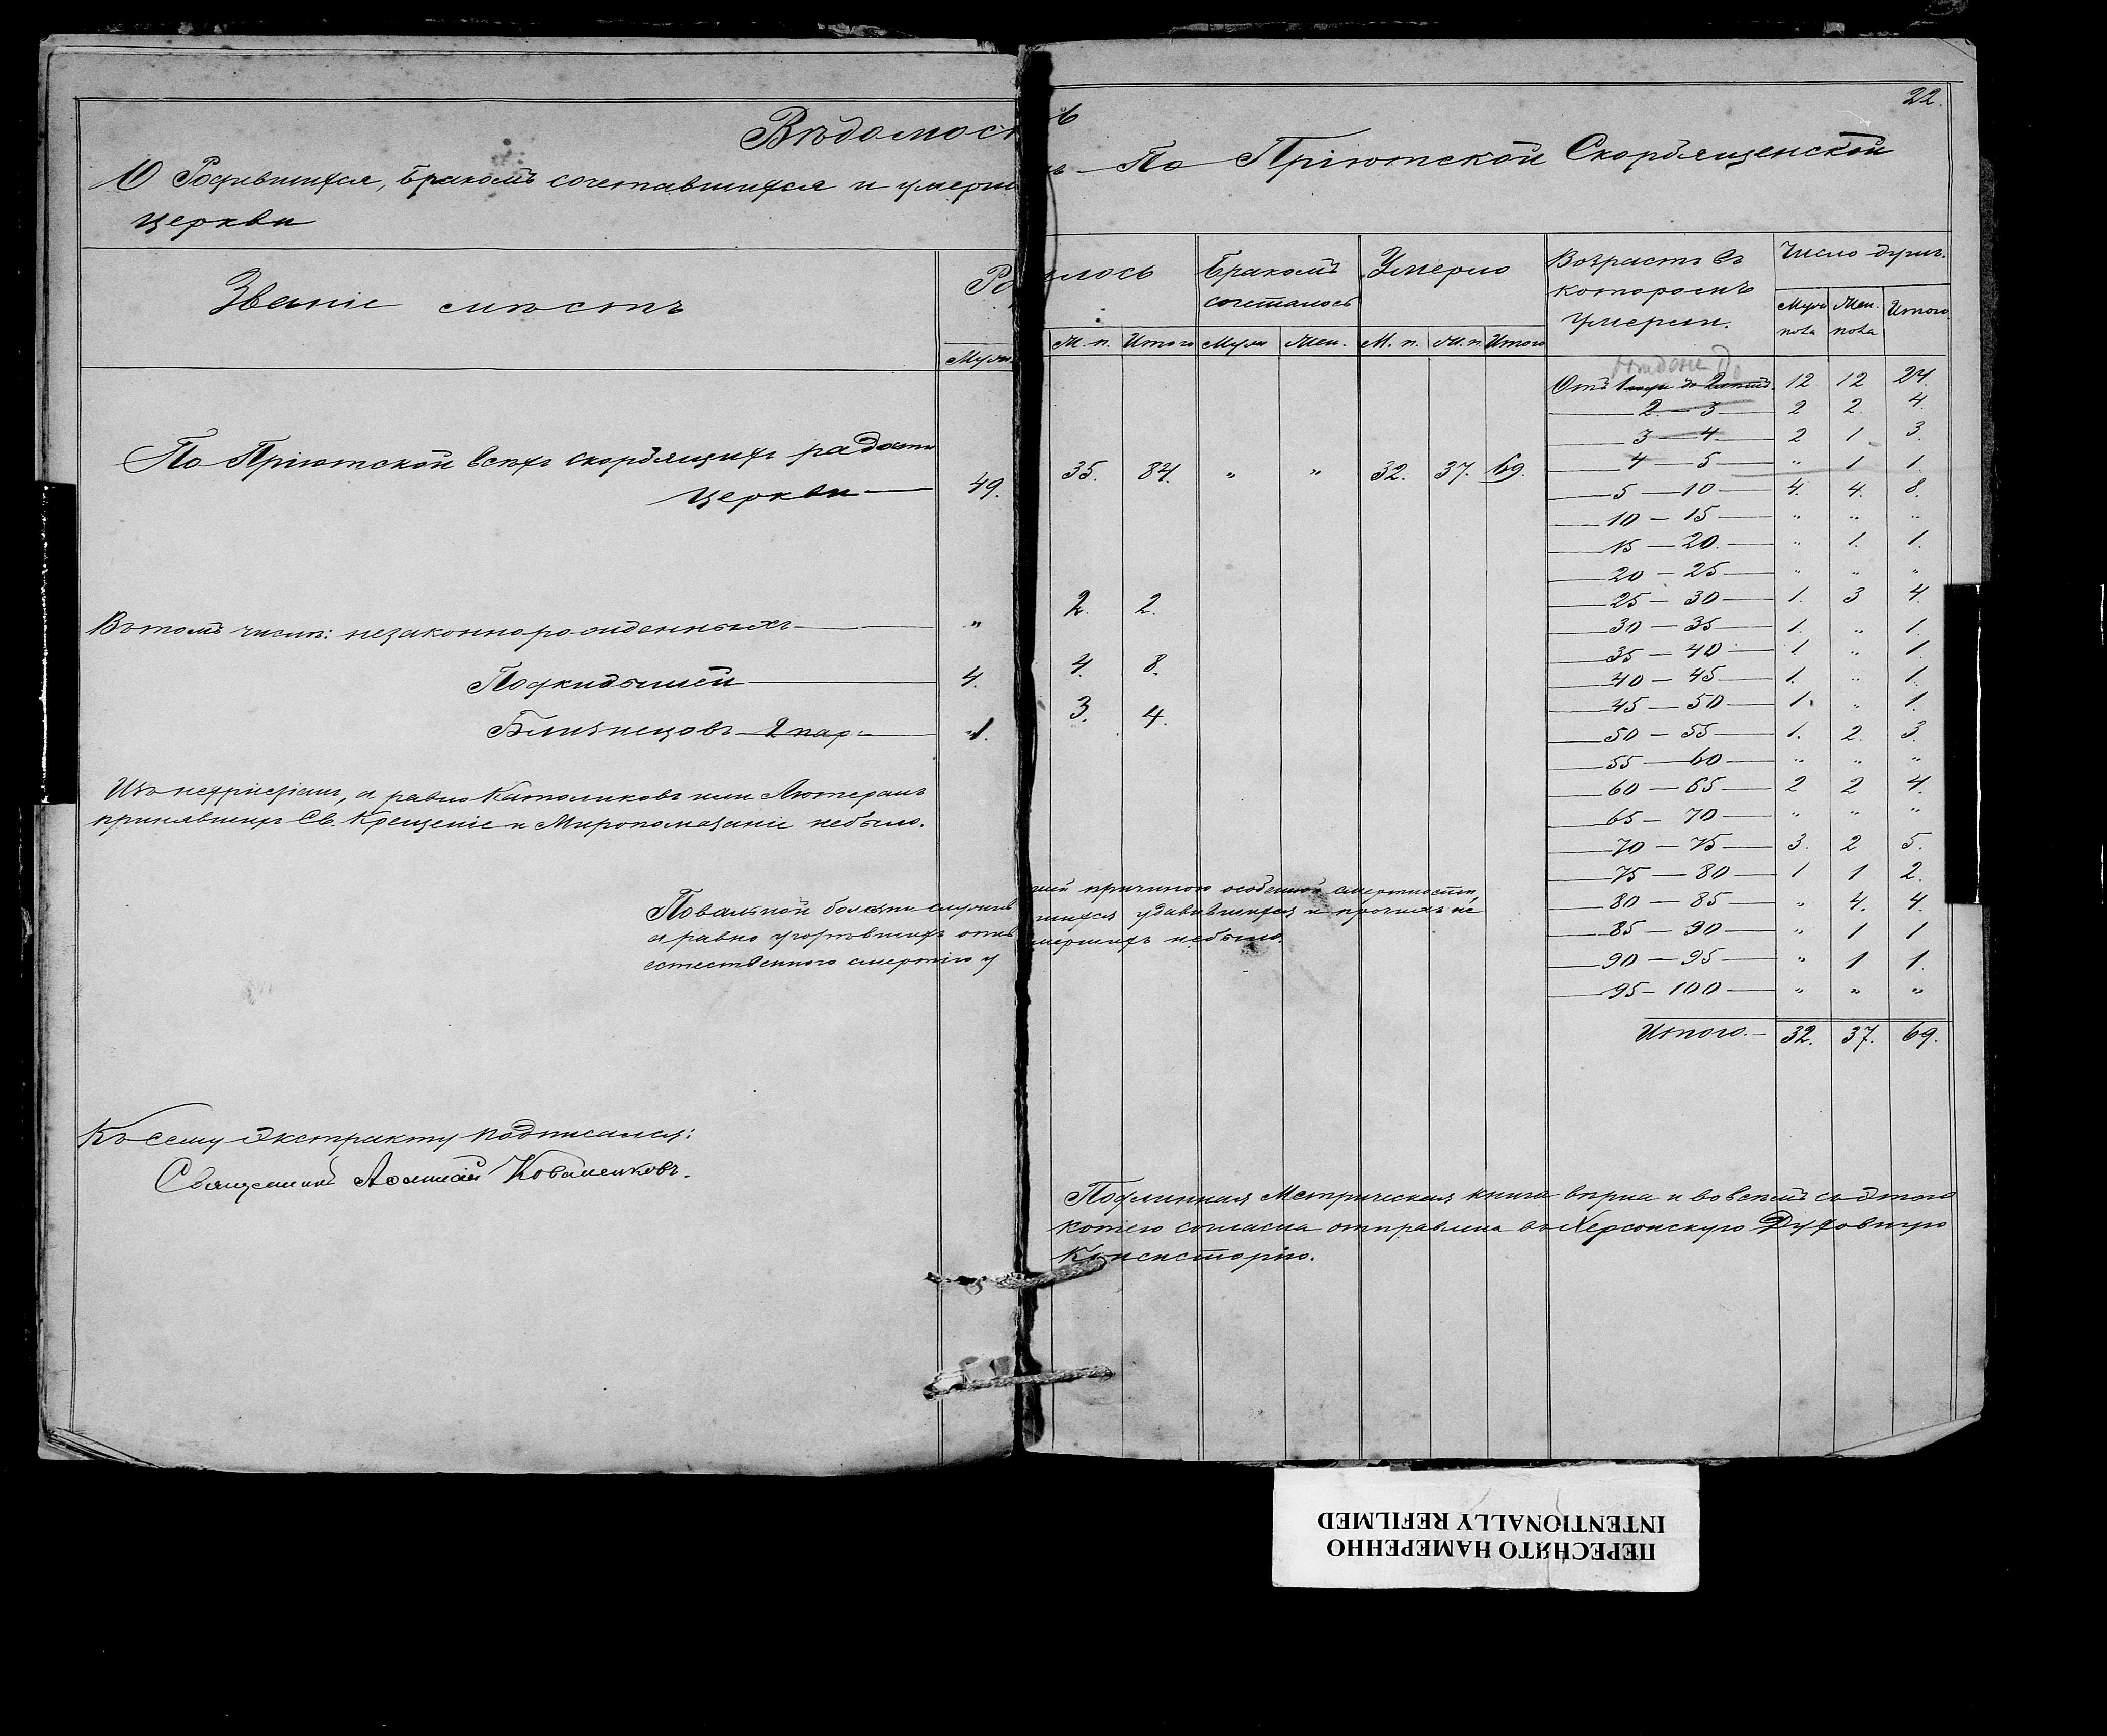 22.
Вѣдомость
О Родившихся, бракомъ сочетавшихся и умерш ъ По Пріютской Скорбященской
церкви
Званіе мѣстъ
Ро лось
Бракомъ сочеталось
Умерло
Возрастъ въ которомъ умерли.
Число душъ.
Муж. М. п. Итого Муж Жен. М. п. Ж. п. Итого
Муж пола Жен. пола Итого
По Пріютской всѣхъ скорбящихъ радости
церкви 49. 35. 84. " " 32. 37. 69.
Въ томъ числѣ: незаконнорожденныхъ " 2. 2.
Подкидышей 4. 4. 8.
Близнецовъ 2 пар. 1. 3. 4.
Изъ нехристіанъ, а равно Католиковъ или Лютеранъ
принявшихъ Св. Крещеніе и Миропомазаніе небыло.
Повальной болѣзни служив шей причиною особенной смертности,
а равно угорѣвшихъ опив шихся удавившихся и прочихъ не
естественною смертію у мершихъ небыло.
Отъ 1 до 2 12 12 24.
2 — 3 2 2. 4.
3 — 4 2 1 3.
4 — 5 " 1 1.
5 — 10 4. 4. 8.
10 — 15 " " "
15 — 20. " 1. 1.
20 — 25 " " "
25 — 30 1. 3 4.
30 — 35 1. " 1.
35 — 40 1 " 1
40 — 45 1. " 1.
45 — 50 1. " 1.
50 — 55 1. 2. 3.
55 — 60 " " "
60 — 65 2 2 4.
65 — 70 " " "
70 — 75 3. 2 5.
75 — 80 1 1 2.
80 — 85 " 4. 4.
85 — 90 " 1 1
90 — 95 " 1 1.
95 — 100 " " "
Итого. — 32. 37. 69.
Къ сему экстракту подписался:
Священникъ Коваленковъ.
Подлинная Метрическая книга вѣрна и во всемъ съ этою
копіею согласна отправлена въ Херсонскую Духовную
Консисторію.
ПЕРЕСНЯТО НАМЕРЕННО
INTENTIONALLY REFILMED